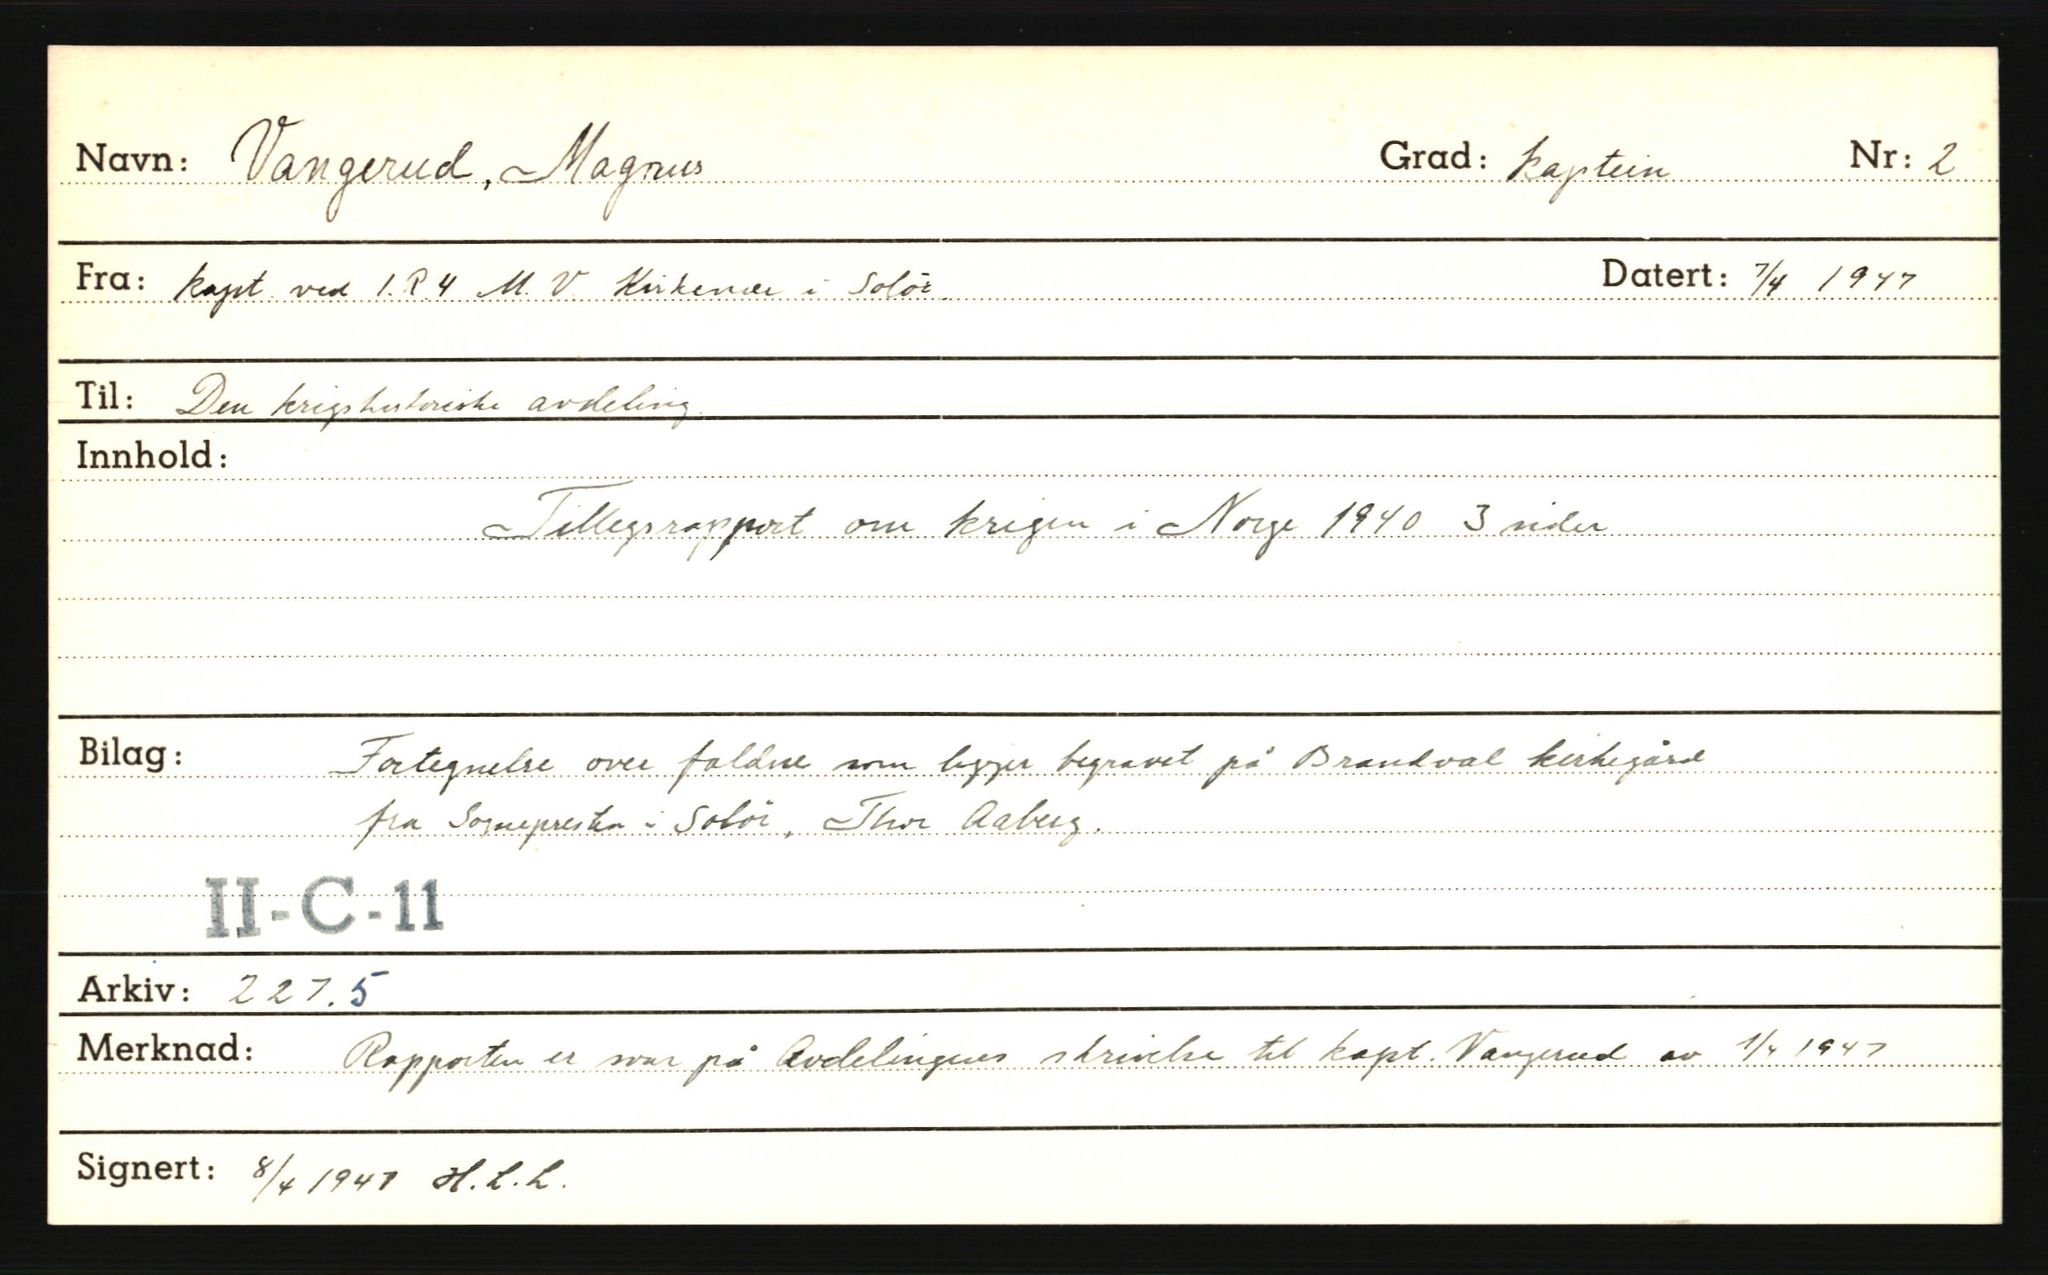 Navn: Vangerud, Magnus Grad: kaptein Nr: 2
Fra: kapt. ved I.R.4 M. V. Kirkenær i Solör. Datert: 7/4 1947
Til: Den krigshistoriske avdeling.
Innhold:
Tilleggsrapport om krigen i Norge 1940 3 sider
Bilag: Fortegnelse over faldne som ligger begravet på Brandval kirkegård
fra Sognepresten i Solör, Thor Aaberg.
II-C-11
Arkiv: 227.5
Merknad: Rapporten er svar på Avdelingens skrivelse til kapt. Vangerud av 1/4 1947
Signert: 8/4 1947 H.L.L.